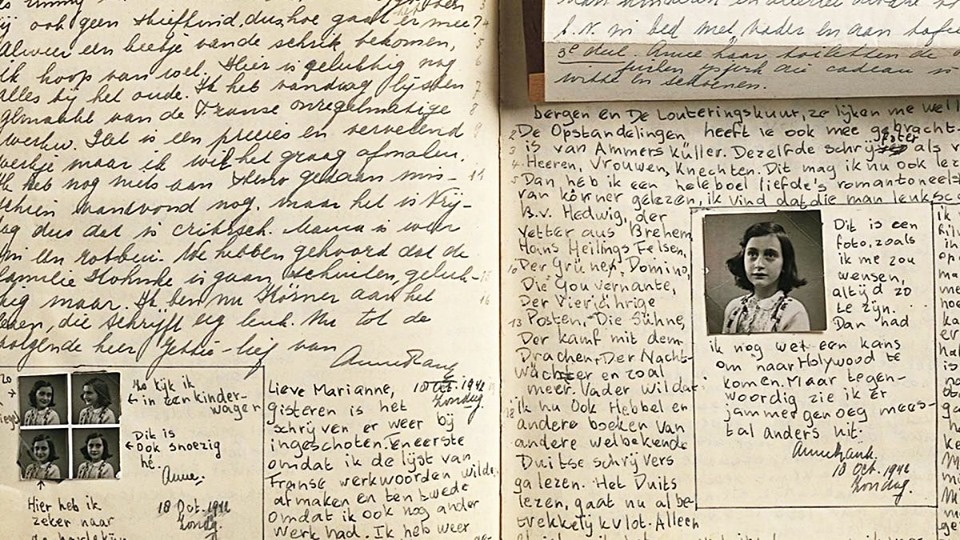 jij ook geen stiefkind, dus hoe gaat er mee?
Alweer een beetje van de schrik bekomen,
ik hoop van wel. Hier is gelukkig nog
alles bij het oude. Ik het vandaag lijsten
gemaakt van de Franse onregelmatige
werkw. Het is een precies en vervelend
werkje maar ik wil het graag afmaken.
Ik heb nog niets aan Steno gedaan mis-
schien vanavond nog. maar het is Vrij-
dag dus dat is critisch. Mama is weer
in een robbeu. We hebben gehoord dat de
familie is gaan schuilen, geluk-
kig maar. Ik ben nu Körner aan het
lezen, die schrijft erg leuk. Nu tot de
volgende keer Jettie-lief van
Anne Frank
Zo kijk ik
in een kinder-
wager
Dit is
ook snoezig
hè.
Anne.
Hier heb ik
zeker naar
18 Oct. 1942
Zondag.
Lieve Marianne,
10 Oct. 1942
Zondag
gisteren is het
schrijven er weer bij
ingeschoten, teneerste
omdat ik de lijst van
Franse werkwoorden wilde
afmaken en ten twede
omdat ik ook nog ander
werk had. Ik heb weer
in bed met vader en aan tafel
3e deel. Anne haar toiletten de
witte en schoenen.
bergen en De Louteringskuur, ze lijken me wel l
De Opstandelingen heeft ie ook mee gebracht
is van Ammers Küller. Dezelfde schrijfster als v
Heeren, Vrouwen, Knechten. Dit mag ik nu ook lez
Dan heb ik een heleboel liefde's romantoneelst
van körner gelezen, ik vind dat die man leuk sc
B.v. Hedwig, der
Vetter aus Brehem,
Hans Heilings Felsen,
Der Grünen Domino,
Die Gouvernante,
Der Vierjährige
Posten, Die Sühne,
Der Kampf mit dem
Drachen, Der Nacht-
wächter en zoal
meer. Vader wil dat
ik nu ook Hebbel en
andere boeken van
andere welbekende
Duitse schrijvers
ga lezen. Het Duits
lezen, gaat nu al be-
trekkelijk vlot. Alleen
Dit is een
foto, zoals
ik me zou
wensen,
altijd zo
te zijn.
Dan had
ik nog wel een kans
om naar Holywood te
komen. Maar tegen-
woordig zie ik er
jammer genoeg mees-
tal anders uit.
Anne Frank.
10 Oct. 1942
Zondag.